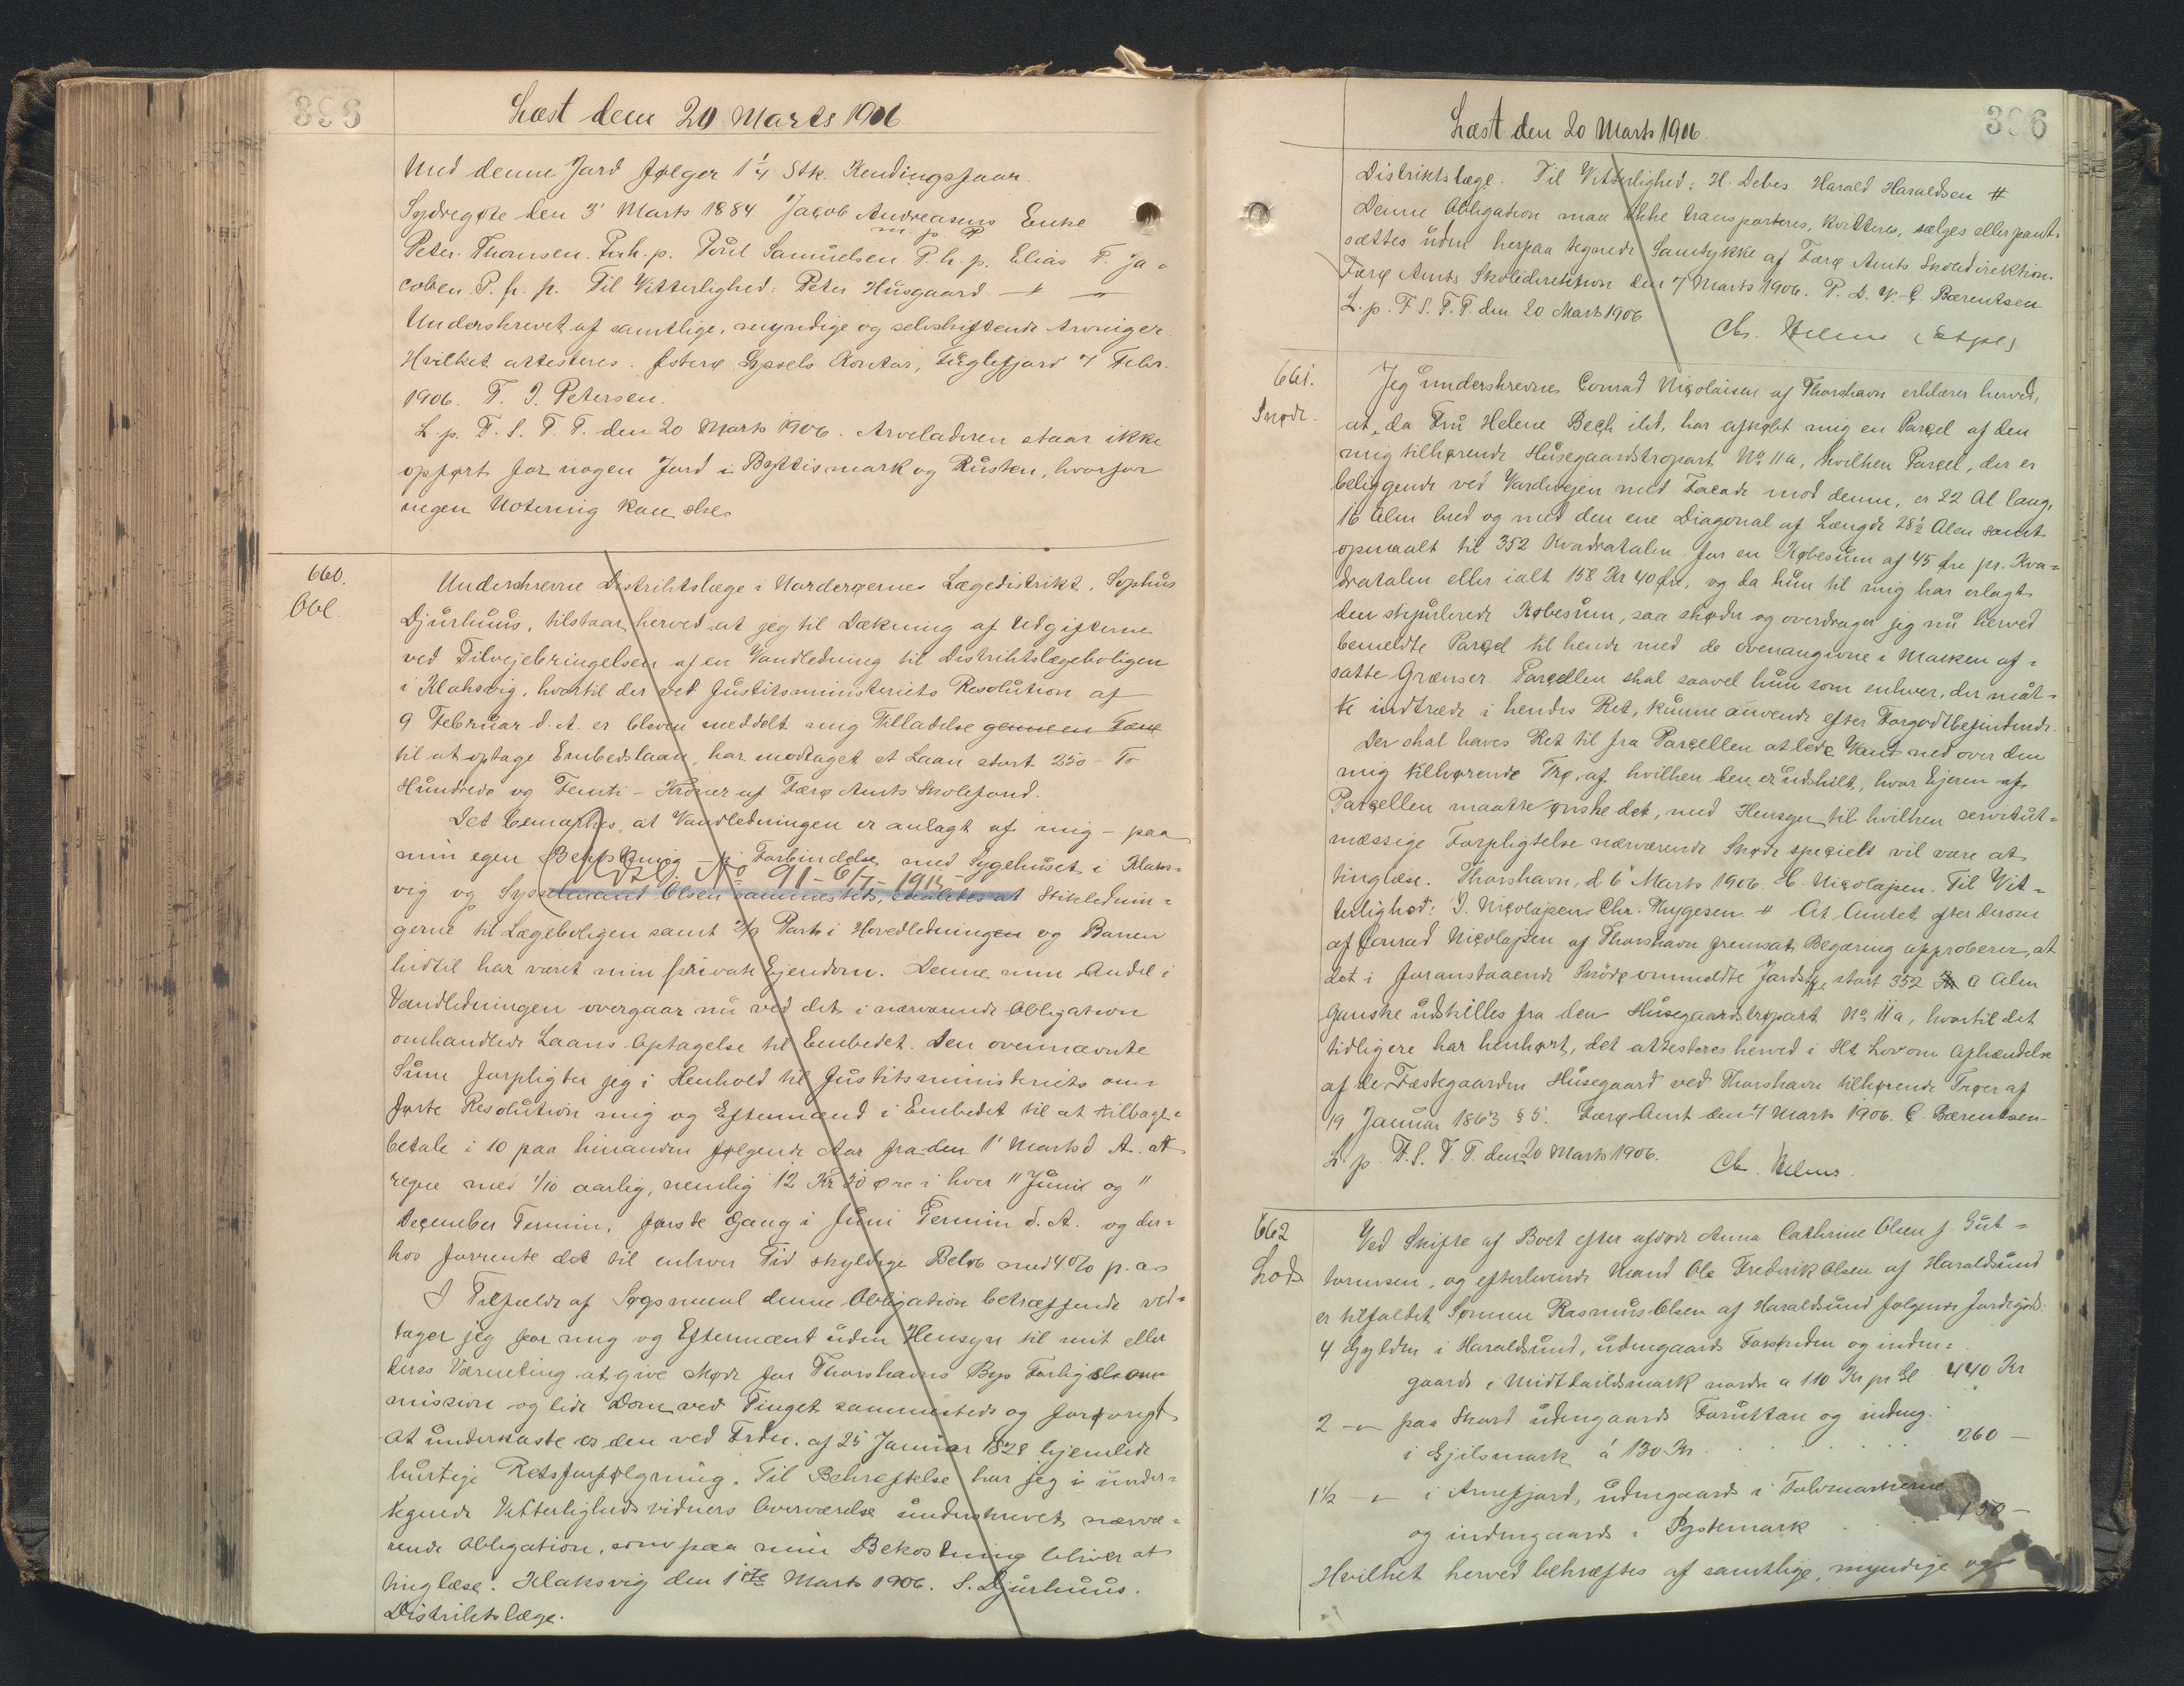 396
Læst den 20 Marts 1906
Med denne Jord følger 1 1/4 Stk. Kendingsfaar.
Sydregøte den 3' Marts 1884 Jacob Andreasens Enke
m. p. P
Peter Thomsen. P.h.p. Poul Samuelsen P.h.p. Elias P. Ja=
cobsen. P. h. p. Til Vitterlighed: Peter Husgaard
Underskrevet af samtlige, myndige og selvskiftende Arvinger.
Hvilket attesteres. Østerø Syssels Kontor, Fuglefjord 7 Febr.
1906. T. I. Petersen.
L. p. F. S. T. P. den 20 Marts 1906. Arveladeren staar ikke
opført for nogen Jord i Byttismark og Rusken, hvorfor
ingen Notering kan ske.
660.
Obl.
Underskrevne Distriktslæge i Norderøernes Lægedistrikt, Sophus
Djurhuus, tilstaar herved at jeg til Dækning af Udgifterne
ved Tilvejebringelsen af en Vandledning til Distriktslægeboligen
i Klaksvig, hvortil der ved Justitsministeriets Resolution af
9 Februar d. A. er bleven meddelt mig Tilladelse
til at optage Embedslaan, har modtaget et Laan stort 250 - To
Hundrede og Femti - Kroner af Færø Amts Skolefond.
Det bemærkes, at Vandledningen er anlagt af mig - paa
min egen Bekostning - i Forbindelse med Sygehuset i Klaks=
Udsl. No 91 - 6/7 - 1914
vig og Sysselmand Olsen sammesteds, saaledes at Stiklednin=
gerne til Lægeboligen samt Part i Hovedledningen og Banen
hidtil har været min private Ejendom. Denne min Andel i
Vandledningen overgaar nu ved det i nærværende Obligation
omhandlede Laans Optagelse til Embedet. Den ovennævnte
Sum forpligter jeg i Henhold til Justitsministeriets an=
førte Resolution mig og Eftermænd i Embedet til at tilbage=
betale i 10 paa hinanden følgende Aar fra den 1' Marts d. A. at
regne med 1/10 aarlig, nemlig 12 Kr 50 Øre i hver 11 Juni og 11
December Termin, første Gang i Juni Termin d. A. og der=
hos forrente det til enhver Tid skyldige Beløb med 4% p. a.
I Tilfælde af Søgsmaal denne Obligation betræffende ved=
tager jeg for mig og Eftermænd uden Hensyn til mit eller
deres Værneting at give Møde for Thorshavns Bys Forligskom
mission og lide Dom ved Tinget sammesteds og forøvrigt
at underkaste os den ved Frdn. af 25 Januar 1828 hjemlede
hurtige Retsforfølgning. Til Bekræftelse har jeg i under=
tegnede Vitterlighedsvidners Overværelse underskrevet nærvæ=
rende Obligation, som paa min Bekostning bliver at
tinglæse. Klaksvig den 1ste Marts 1906. S. Djurhuus.
Distriktslæge.
396
Læst den 20 Marts 1906.
Distriktslæge. Til Vitterlighed: H. Debes. Harald Haraldsen #
Denne Obligation maa ikke transporteres, kvitteres, sælges eller pant=
sættes uden herpaa tegnede Samtykke af Færø Amts Skoledirektion.
Færø Amts Skoledirektion den 7 Marts 1906. P. D. V. C. Bærentsen
L. p. F. S. T. P. den 20 Marts 1906
Chr. Helms
661.
Skøde.
Jeg underskrevne Conrad Nicolaisen af Thorshavn erklærer herved,
at, da Fru Helene Bech ibd, har afkøbt mig en Parcel af den
mig tilhørende Husegaardstropart No 11a, hvilken Parcel, der er
beliggende ved Vardevejen med Facade mod denne, er 22 Al lang,
16 Alen bred og med den ene Diagonal af Længde 28 1/2 Alen samt
opmaalt til 352 Kvadratalen for en Købesum af 45 Øre pr. Kva=
dratalen eller ialt 158 Kr 40 Øre, og da hun til mig har erlagt
den stipulerede Købesum, saa skøder og overdrager jeg nu herved
bemeldte Parcel til hende med de ovenangivne i Marken af=
satte Grænser. Parcellen skal saavel hun som enhver, der maat=
te indtræde i hendes Ret, kunne anvende efter Forgodtbefindende.
Der skal haves Ret til fra Parcellen at lede Vand ned over den
mig tilhørende Trø, af hvilken den er udskilt, hvor Ejeren af
Parcellen maatte ønske det, med Hensyn til hvilken servitut=
mæssige Forpligtelse nærværende Skøde specielt vil være at
tinglæse. Thorshavn, d 6' Marts 1906. C. Nicolajsen. Til Vit=
terlighed: I. Nicolajsen. Chr. Thygesen. # At Amtet efter derom
af Conrad Nicolajsen af Thorshavn fremsat Begæring approberer, at
det i foranstaaende Skøde ommeldte Jordstk, stort 352 □ Alen
ganske udskilles fra den Husegaardstropart No 11a, hvortil det
tidligere har henhørt, det attesteres herved i Hl. Lov om Afhændelse
af de Fæstegaarden Husegaard ved Thorshavn tilhørende Trøer af
19 Januar 1863 § 5. Færø Amt den 7 Marts 1906. C. Bærentsen
L. p. F. S. T. P. den 20 Marts 1906.
Chr. Helms.
662
Lods
Ved Skifte af Boet efter afdøde Anna Cathrine Olsen f. Gut=
tormsen, og efterlevende Mand Ole Frederik Olsen af Haraldsund
er tilfaldet Sønnen Rasmus Olsen af Haraldsund følgende Jordegods:
4 Gylden i Haraldsund, udengaards Forstuden og inden=
gaards i Midthaildsmark norde a 110 Kr pr Gl 440 Kr
2 -"- paa Skard udengaards Foruttan og indeng.
i Gjilsmark á 130 Kr . . . . 260 -
1 1/2 -"- i Arnefjord, udengaards i
og indengaards i Pystemark . . . 150 -
Hvilket herved bekræftes af samtlige, myndige og